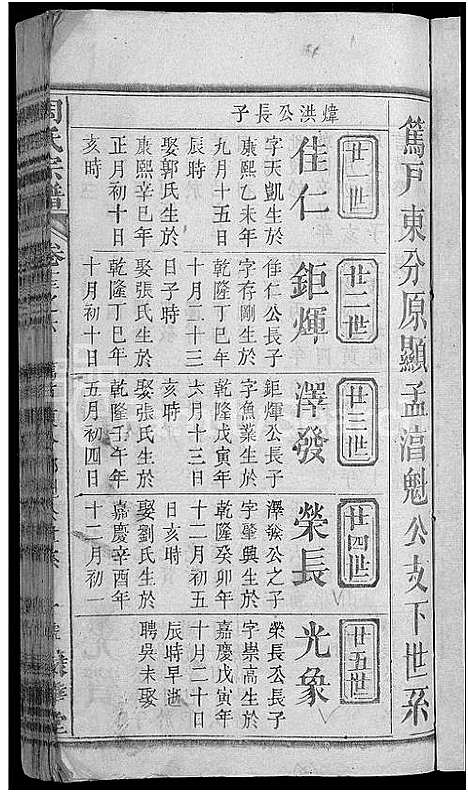 篤戶東分原顯孟湻魁公支下世系
煒洪公長子
廿一世
佳仁
字天凱生於
康熙乙未年
九月十五日
辰時
娶郭氏生於
康熙辛巳年
正月初十日
亥時
廿二世
鉅煇
佳仁公長子
字存剛生於
乾隆丁巳年
十月二十三
日子時
娶張氏生於
乾隆丁巳年
十月初十日
廿三世
澤發
鉅煇公長子
字魚業生於
乾隆戊寅年
六月十三日
亥時
娶張氏生於
乾隆壬午年
五月初四日
廿四世
榮長
澤發公之子
字肇興生於
乾隆癸卯年
十二月初五
日亥時
娶劉氏生於
嘉慶辛酉年
十二月初一
廿五世
光象
榮長公長子
字崇高生於
嘉慶戊寅年
十月二十日
辰時早逝
聘吳未娶
周氏宗譜